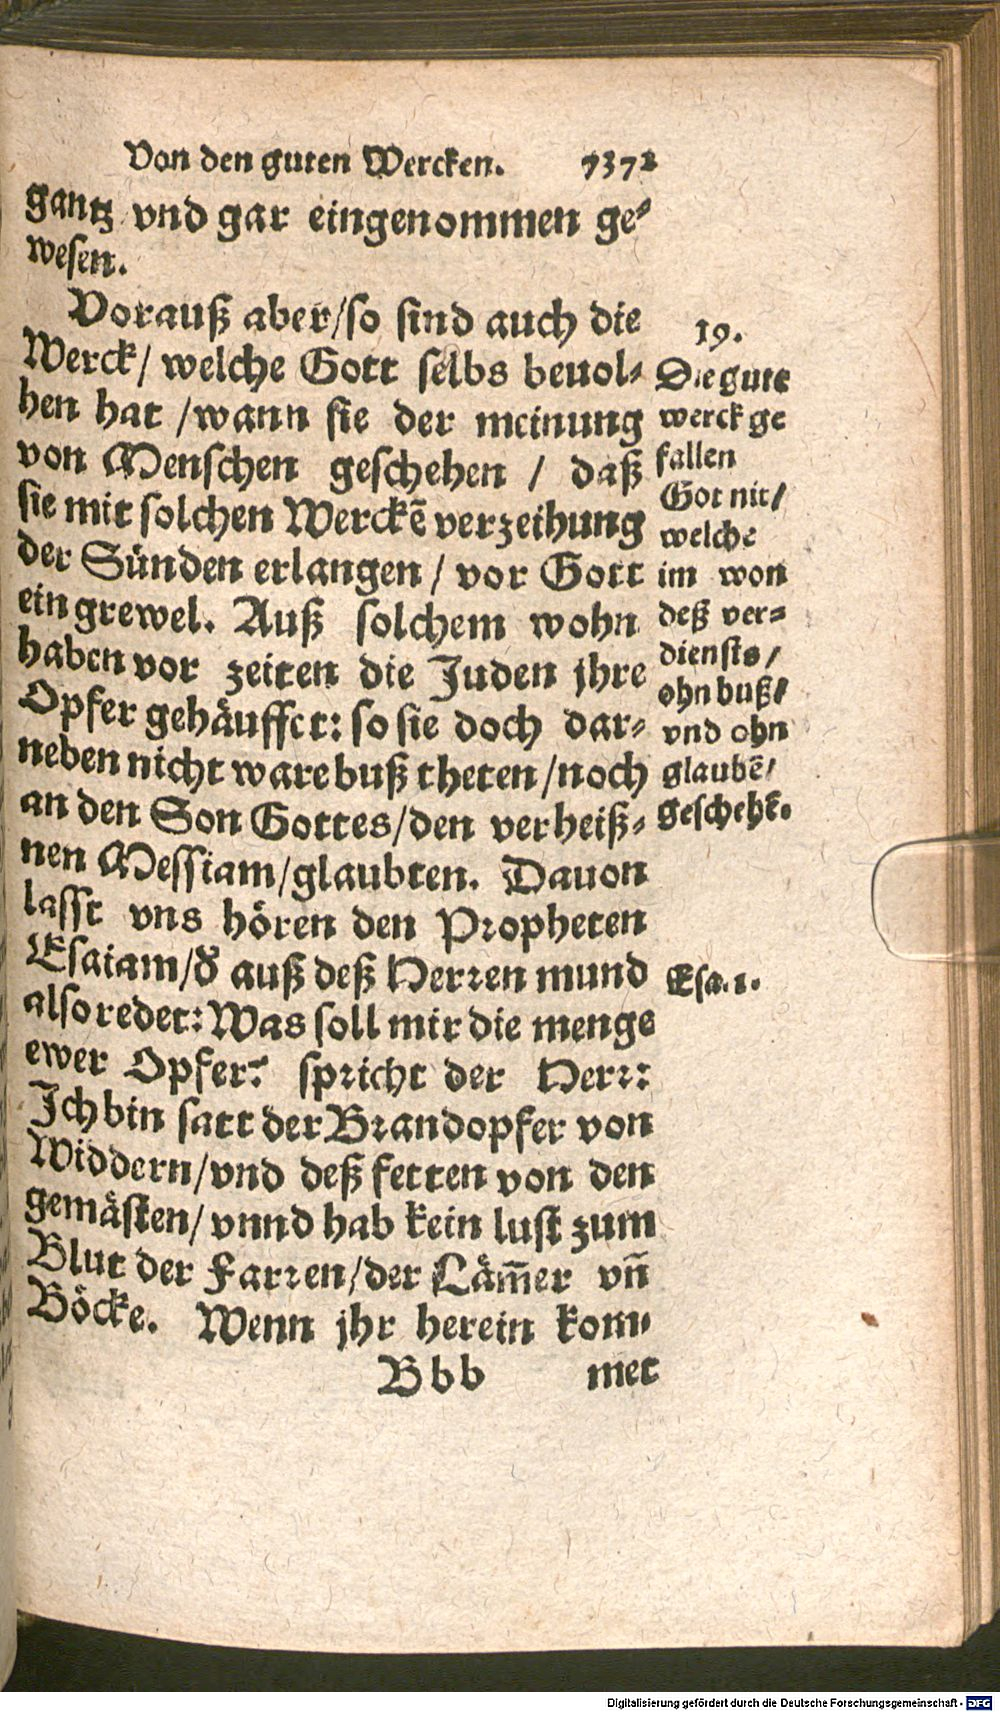 Von den guten Wercken. 7372
gantz vnd gar eingenommen ge-
wesen.
Vorauß aber/so sind auch die
Werck/ welche Gott selbs beuol-
hen hat /wann sie der meinung
von Menschen geschehen / daß
sie mit solchen Werckẽ verzeihung
der Sünden erlangen / vor Gott
ein grewel. Auß solchem wohn
haben vor zeiten die Juden jhre
Opfer gehäuffet: so sie doch dar-
neben nicht ware buß theten/noch
an den Son Gottes/den verheiß-
nen Messiam/glaubten. Dauon
lasst vns hören den Propheten
Esaiam/d' auß deß Herren mund
also redet: Was soll mir die menge
ewer Opfer? spricht der Herr:
Ich bin satt der Brandopfer von
Widdern/vnd deß fetten von den
gemästen/ vnnd hab kein lust zum
Blut der Farren/der Läm̃er vñ
Böcke. Wenn jhr herein kom-
Bbb met
19.
Die gute
werck ge
fallen
Got nit/
welche
im won
deß ver-
diensts/
ohn buß/
vnd ohn
glaubẽ/
geschehẽ.
Esa.1.
Digitalisierung gefördert durch die Deutsche Forschungsgemeinschaft - DFG